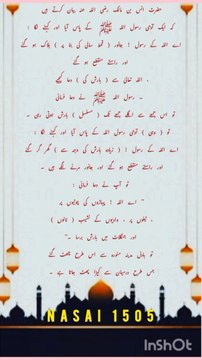 حضرت انس بن مالک رضی اللہ عنہ بیان کرتے ہیں
کہ ایک آدمی رسول اللہ ﷺ کے پاس آیا اور کہنے لگا :
اے اللہ کے رسول ! جانور ( قحط سالی کی بنا پر ) ہلاک ہو گئے
اور راستے منقطع ہو گئے
، اللہ تعالیٰ سے ( بارش کی ) دعا کیجیے
، رسول اللہ ﷺ نے دعا فرمائی
تو اس جمعے سے اگلے جمعے تک ( مسلسل ) بارش ہوتی رہی ۔
تو ( وہی ) آدمی رسول اللہ کے پاس آیا اور کہنے لگا :
اے اللہ کے رسول ! ( زیادہ بارش کی وجہ سے ) گھر گر گئے
اور راستے منقطع ہو گئے اور جانور مرنے لگے ہیں ۔
تو آپ نے دعا فرمائی :
" اے اللہ ! پہاڑوں کی چوٹیوں پر
، ٹیلوں پر ، وادیوں کے نشیب ( نالوں )
اور جنگلات میں بارش برسا ۔"
تو بادل مدینہ منورہ سے اس طرح چھٹ گئے
جس طرح درمیان سے کپڑا پھٹ جاتا ہے ۔
NASAI 1505
InShOt